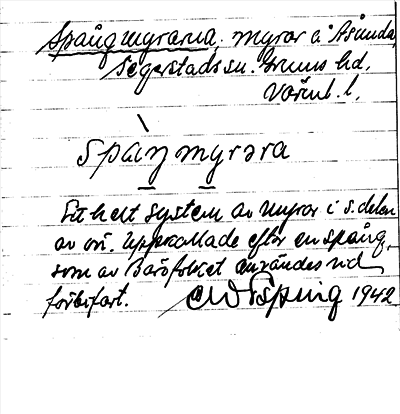 Spångmyrarna, myrar i Åsunda,
Segerstads sn. Grums hd,
Värml. l,
spàŋmyrəra
Ett helt system av myror i s. delen
av  Uppkallade efter en spång,
som av  användes vid
förbifart.  1942